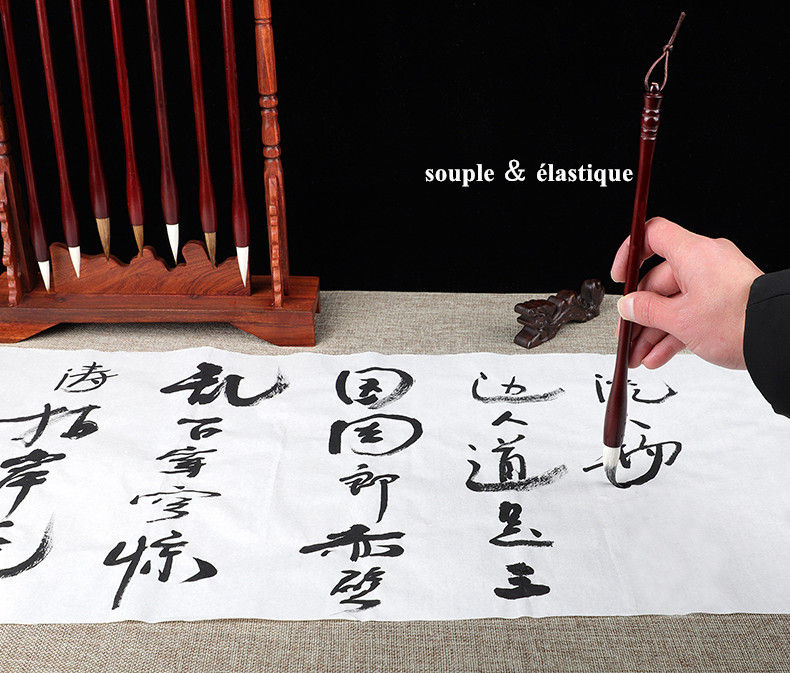 souple & élastique
边人道是三
国周郎赤壁
乱石穿空惊
涛拍岸